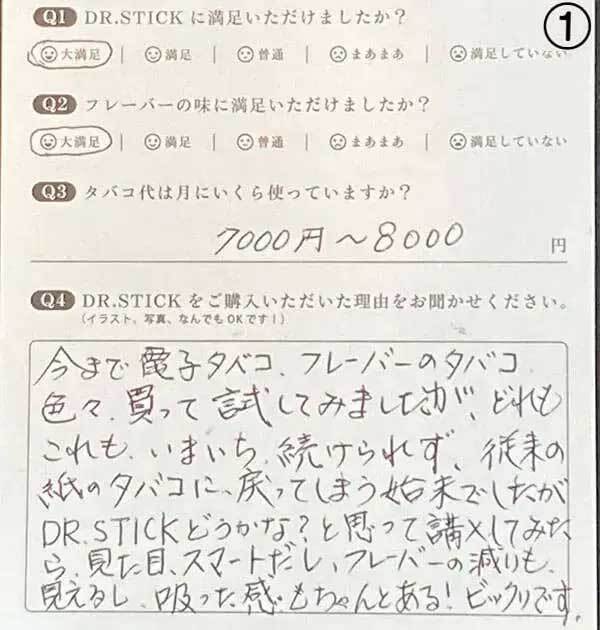 ①
Q1 DR.STICK に満足いただけましたか？
大満足 | 満足 | 普通 | まあまあ | 満足していない
Q2 フレーバーの味に満足いただけましたか？
大満足 | 満足 | 普通 | まあまあ | 満足していない
Q3 タバコ代は月にいくら使っていますか？
7000円～8000 円
Q4 DR.STICK をご購入いただいた理由をお聞かせください。
(イラスト、写真、なんでもOKです！)
今まで電子タバコ、フレーバーのタバコ
色々、買って試してみましたが、どれも
これも、いまいち、続けられず、従来の
紙のタバコに、戻ってしまう始末でしたが
DR.STICKどうかな？と思って講入してみた
ら、見た目、スマートだし、フレーバーの減りも、
見えるし、吸った感もちゃんとある！ビックリです。